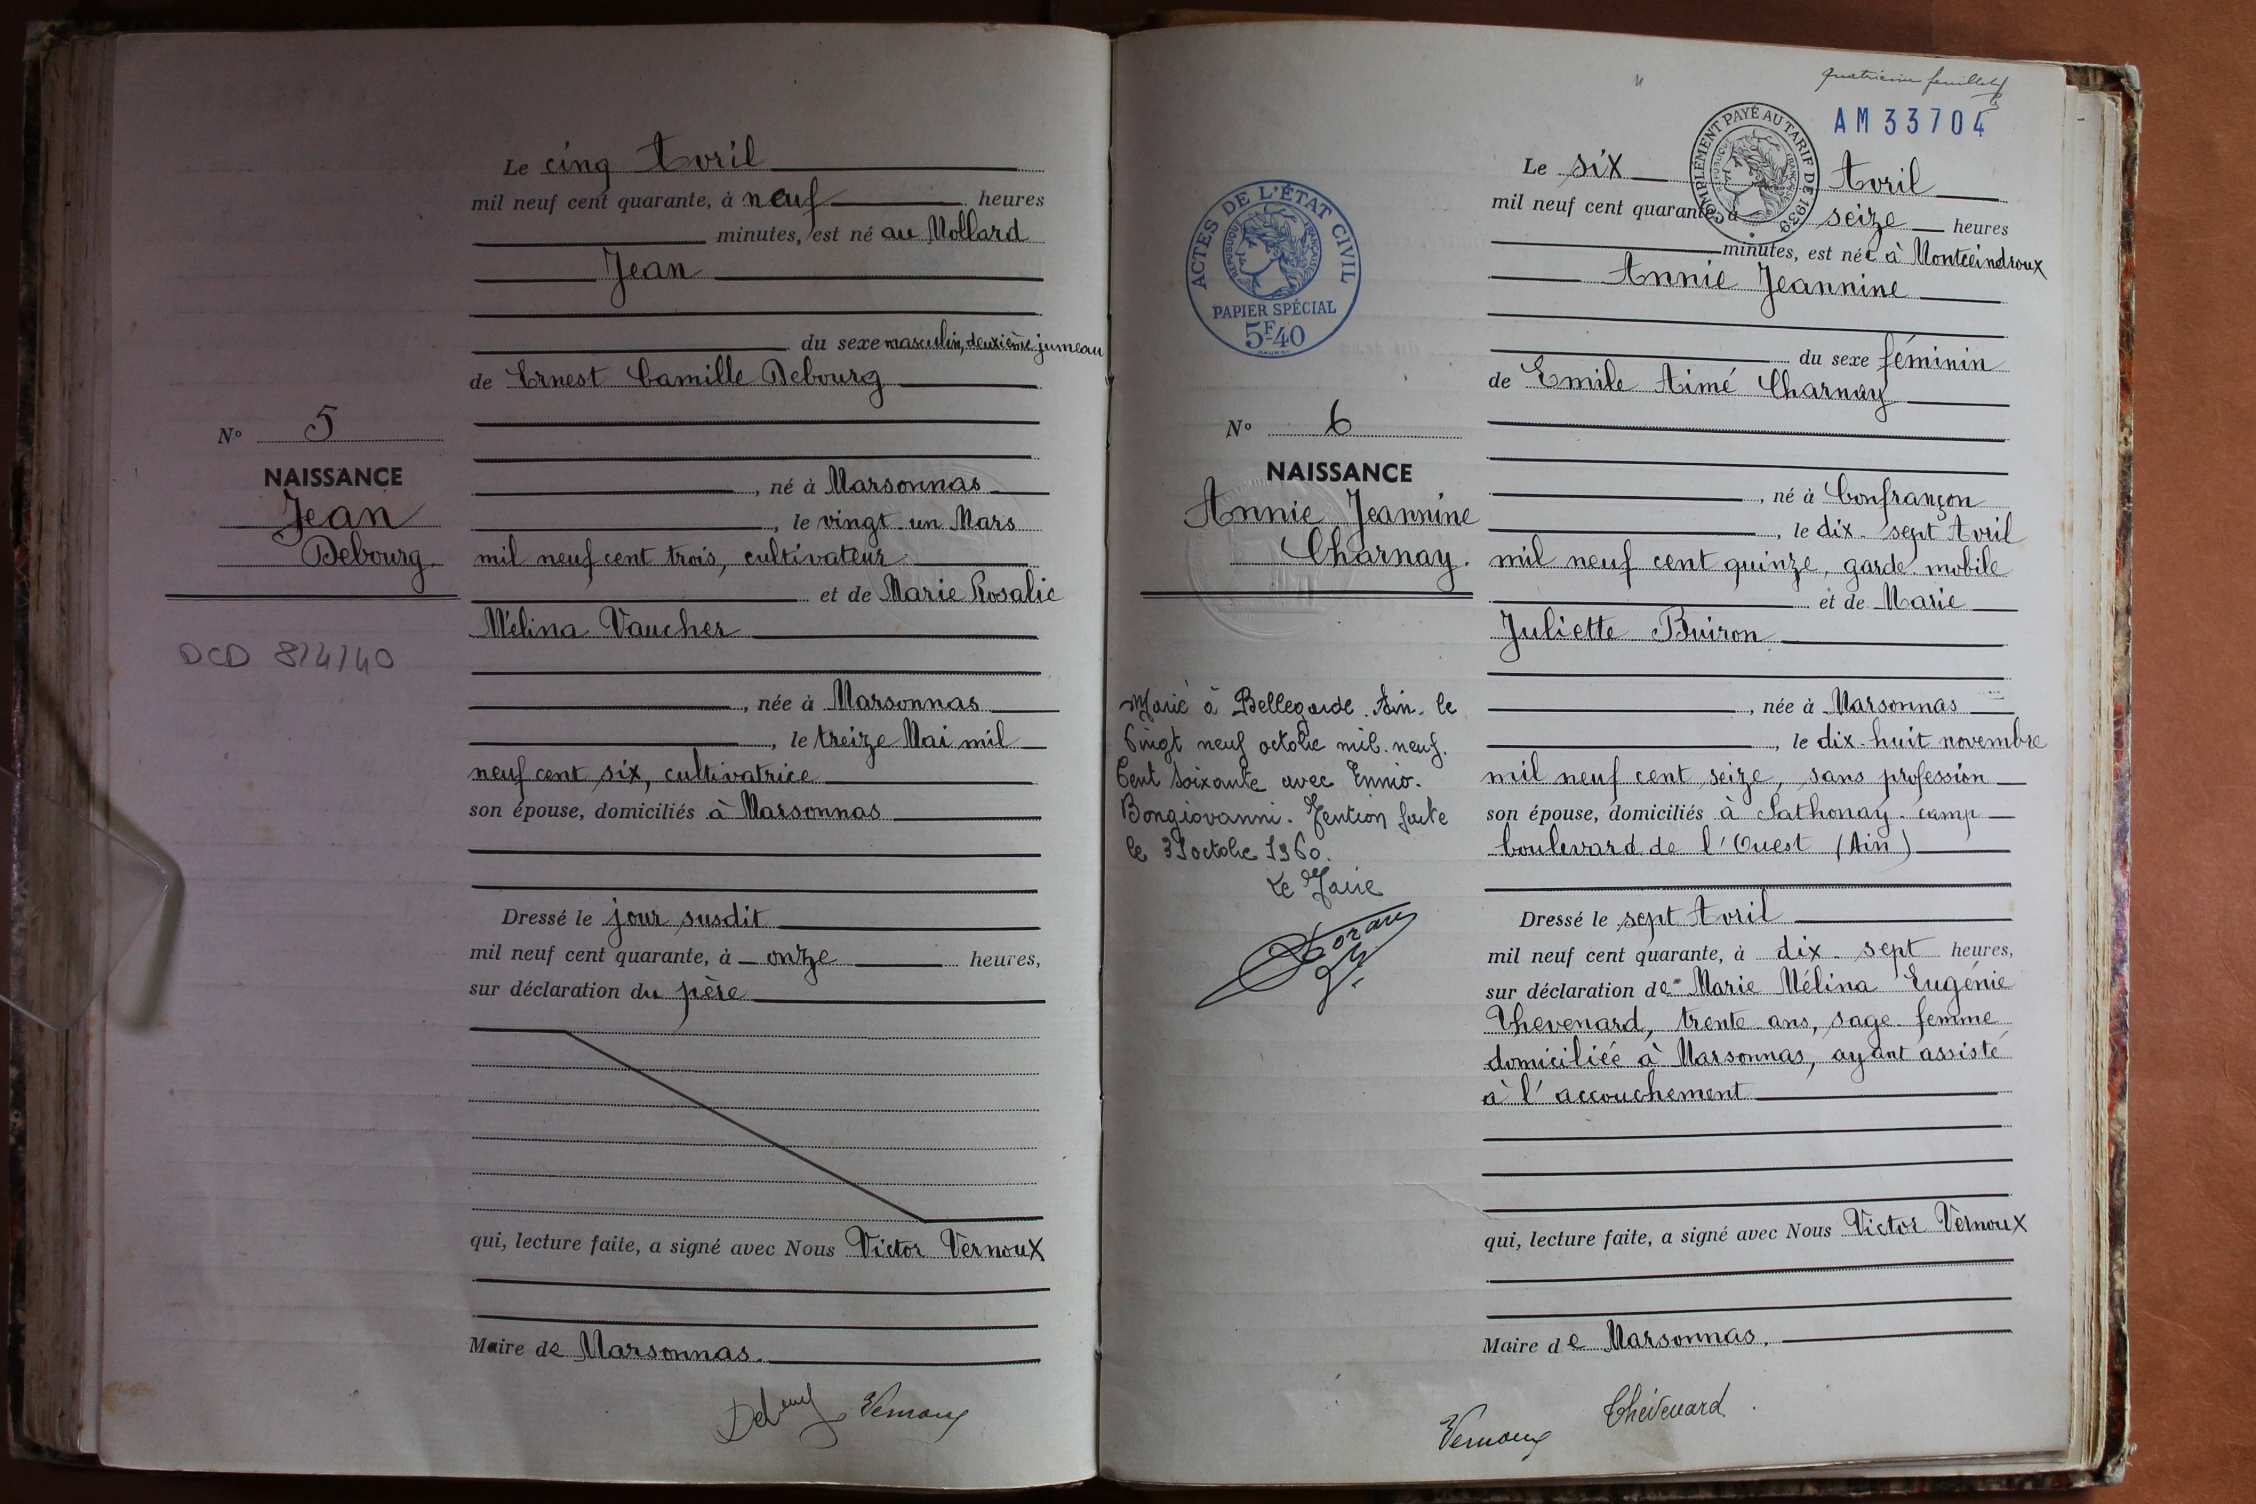 Le cinq Avril
mil neuf cent quarante, à neuf heures
minutes, est né au Mollard
Jean
du sexe masculin, deuxième jumeau
de Ernest Camille Debourg
N° 5
NAISSANCE
Jean
Debourg.
DCD 8/4/40
, né à Marsonnas
, le vingt-un Mars
mil neuf cent trois, cultivateur
et de Marie Rosalie
Mélina Vaucher
, née à Marsonnas
, le treize Mai mil
neuf cent six, cultivatrice
son épouse, domiciliés à Marsonnas
Dressé le jour susdit
mil neuf cent quarante, à onze heures,
sur déclaration du père
qui, lecture faite, a signé avec Nous Victor Vernoux
Maire de Marsonnas.
Vernoux
quatrième feuillet
AM 33704
COMPLÉMENT PAYÉ AU TARIF DE 1939
RÉPUBLIQUE FRANÇAISE
ACTES DE L'ÉTAT CIVIL
RÉPUBLIQUE FRANÇAISE
PAPIER SPÉCIAL
5F40
Le six Avril
mil neuf cent quarante, à seize heures
minutes, est née à Montceindroux
Annie Jeannine
du sexe féminin
de Emile Aimé Charnay
N° 6
NAISSANCE
Annie Jeannine
Charnay.
, né à Confrançon
, le dix-sept Avril
mil neuf cent quinze, garde-mobile
et de Marie
Juliette Buiron
, née à Marsonnas
, le dix-huit novembre
mil neuf cent seize, sans profession
son épouse, domiciliés à Sathonay-camp
boulevard de l'Ouest (Ain)
Marié à Bellegarde. Ain. le
Vingt neuf octobre mil. neuf.
Cent soixante avec Ennio.
Bongiovanni. Mention faite
le 31 octobre 1960.
Le Maire
Dressé le sept Avril
mil neuf cent quarante, à dix-sept heures,
sur déclaration de Marie Mélina Eugénie
Thevenard, trente ans, sage-femme
domiciliée à Marsonnas, ayant assisté
à l'accouchement
qui, lecture faite, a signé avec Nous Victor Vernoux
Maire de Marsonnas.
Vernoux Thévenard